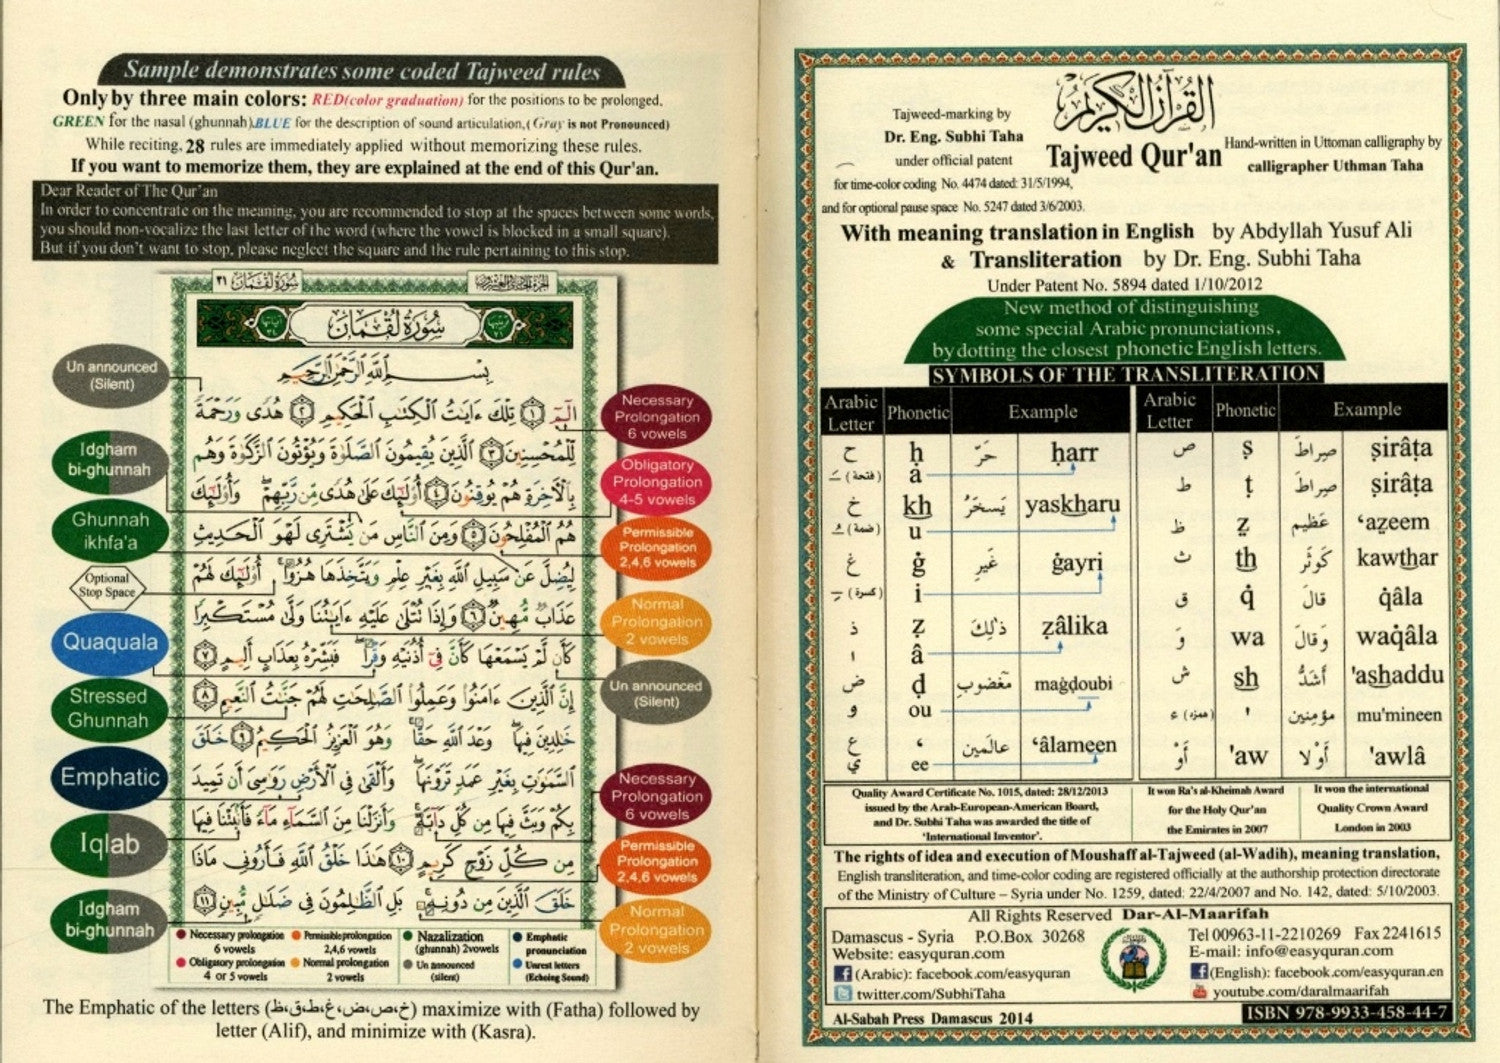 Sample demonstrates some coded Tajweed rules
Only by three main colors: RED(color graduation) for the positions to be prolonged.
GREEN for the nasal (ghunnah).BLUE for the description of sound articulation,( Gray is not Pronounced)
While reciting, 28 rules are immediately applied without memorizing these rules.
If you want to memorize them, they are explained at the end of this Qur'an.
Dear Reader of The Qur'an
In order to concentrate on the meaning, you are recommended to stop at the spaces between some words,
you should non-vocalize the last letter of the word (where the vowel is blocked in a small square).
But if you don't want to stop, please neglect the square and the rule pertaining to this stop.
سُورَةُ لُقْمَان ٣١
سُورَةُ لُقْمَان
بِسْمِ اللَّهِ الرَّحْمَٰنِ الرَّحِيمِ
الٓمٓ ١ تِلْكَ ءَايَٰتُ الْكِتَٰبِ الْحَكِيمِ ٢ هُدًى وَرَحْمَةً
لِّلْمُحْسِنِينَ ٣ الَّذِينَ يُقِيمُونَ الصَّلَوٰةَ وَيُؤْتُونَ الزَّكَوٰةَ وَهُم
بِالْءَاخِرَةِ هُمْ يُوقِنُونَ ٤ أُوْلَٰٓئِكَ عَلَىٰ هُدًى مِّن رَّبِّهِمْ وَأُوْلَٰٓئِكَ
هُمُ الْمُفْلِحُونَ ٥ وَمِنَ النَّاسِ مَن يَشْتَرِى لَهْوَ الْحَدِيثِ
لِيُضِلَّ عَن سَبِيلِ اللَّهِ بِغَيْرِ عِلْمٍ وَيَتَّخِذَهَا هُزُوًا أُوْلَٰٓئِكَ لَهُمْ
عَذَابٌ مُّهِينٌ ٦ وَإِذَا تُتْلَىٰ عَلَيْهِ ءَايَٰتُنَا وَلَّىٰ مُسْتَكْبِرًا
كَأَن لَّمْ يَسْمَعْهَا كَأَنَّ فِىٓ أُذُنَيْهِ وَقْرًا فَبَشِّرْهُ بِعَذَابٍ أَلِيمٍ ٧
إِنَّ الَّذِينَ ءَامَنُوا وَعَمِلُوا الصَّٰلِحَٰتِ لَهُمْ جَنَّٰتُ النَّعِيمِ ٨
خَٰلِدِينَ فِيهَا وَعْدَ اللَّهِ حَقًّا وَهُوَ الْعَزِيزُ الْحَكِيمُ ٩ خَلَقَ
السَّمَٰوَٰتِ بِغَيْرِ عَمَدٍ تَرَوْنَهَا وَأَلْقَىٰ فِى الْأَرْضِ رَوَٰسِىَ أَن تَمِيدَ
بِكُمْ وَبَثَّ فِيهَا مِن كُلِّ دَآبَّةٍ وَأَنزَلْنَا مِنَ السَّمَآءِ مَآءً فَأَنۢبَتْنَا فِيهَا
مِن كُلِّ زَوْجٍ كَرِيمٍ ١٠ هَٰذَا خَلْقُ اللَّهِ فَأَرُونِى مَاذَا
خَلَقَ الَّذِينَ مِن دُونِهِ بَلِ الظَّٰلِمُونَ فِى ضَلَٰلٍ مُّبِينٍ ١١
Un announced
(Silent)
Idgham
bi-ghunnah
Ghunnah
ikhfa'a
Optional
Stop Space
Quaquala
Stressed
Ghunnah
Emphatic
Iqlab
Idgham
bi-ghunnah
Necessary
Prolongation
6 vowels
Obligatory
Prolongation
4-5 vowels
Permissible
Prolongation
2,4,6 vowels
Normal
Prolongation
2 vowels
Un announced
(Silent)
Necessary
Prolongation
6 vowels
Permissible
Prolongation
2,4,6 vowels
Normal
Prolongation
2 vowels
Necessary prolongation 6 vowels
Permissible prolongation 2,4,6 vowels
Nazalization (ghunnah) 2vowels
Emphatic pronunciation
Obligatory prolongation 4 or 5 vowels
Normal prolongation 2 vowels
Un announced (silent)
Unrest letters (Echoing Sound)
The Emphatic of the letters (خ،ص،ض،غ،ط،ق،ظ) maximize with (Fatha) followed by
letter (Alif), and minimize with (Kasra).
القرآن الكريم
Tajweed Qur'an
Tajweed-marking by
Dr. Eng. Subhi Taha
under official patent
for time-color coding No. 4474 dated: 31/5/1994,
and for optional pause space No. 5247 dated 3/6/2003.
Hand-written in Uttoman calligraphy by
calligrapher Uthman Taha
With meaning translation in English by Abdyllah Yusuf Ali
& Transliteration by Dr. Eng. Subhi Taha
Under Patent No. 5894 dated 1/10/2012
New method of distinguishing
some special Arabic pronunciations,
by dotting the closest phonetic English letters.
SYMBOLS OF THE TRANSLITERATION
Arabic Letter Phonetic Example Arabic Letter Phonetic Example
ح ḥ حَرّ ḥarr
(فتحة) َ a
خ kh يَسخَرُ yaskharu
(ضمة) ُ u
غ ġ غَيرِ ġayri
(كسرة) ِ i
ذ ẓ ذٰلِكَ ẓâlika
ا â
ض ḍ مَغضوبِ maġḍoubi
و ou
ع ‘ عالَمين ‘âlameen
ي ee
ص ṣ صِراطَ ṣirâṭa
ط ṭ صِراطَ ṣirâṭa
ظ ẓ عَظيم ‘aẓeem
ث th كَوثَر kawthar
ق q̇ قالَ q̇âla
وَ wa وَقالَ waq̇âla
ش sh أَشَدُّ 'ashaddu
(همزة) ء ' مؤمِنين mu'mineen
أَوْ 'aw أَوْلا 'awlâ
Quality Award Certificate No. 1015, dated: 28/12/2013
issued by the Arab-European-American Board,
and Dr. Subhi Taha was awarded the title of
‘International Inventor’.
It won Ra's al-Kheimah Award
for the Holy Qur'an
the Emirates in 2007
It won the international
Quality Crown Award
London in 2003
The rights of idea and execution of Moushaff al-Tajweed (al-Wadih), meaning translation,
English transliteration, and time-color coding are registered officially at the authorship protection directorate
of the Ministry of Culture – Syria under No. 1259, dated: 22/4/2007 and No. 142, dated: 5/10/2003.
All Rights Reserved Dar-Al-Maarifah
Damascus - Syria P.O.Box 30268
Website: easyquran.com
(Arabic): facebook.com/easyquran
twitter.com/SubhiTaha
Tel 00963-11-2210269 Fax 2241615
E-mail: info@easyquran.com
(English): facebook.com/easyquran.en
youtube.com/daralmaarifah
Al-Sabah Press Damascus 2014
ISBN 978-9933-458-44-7